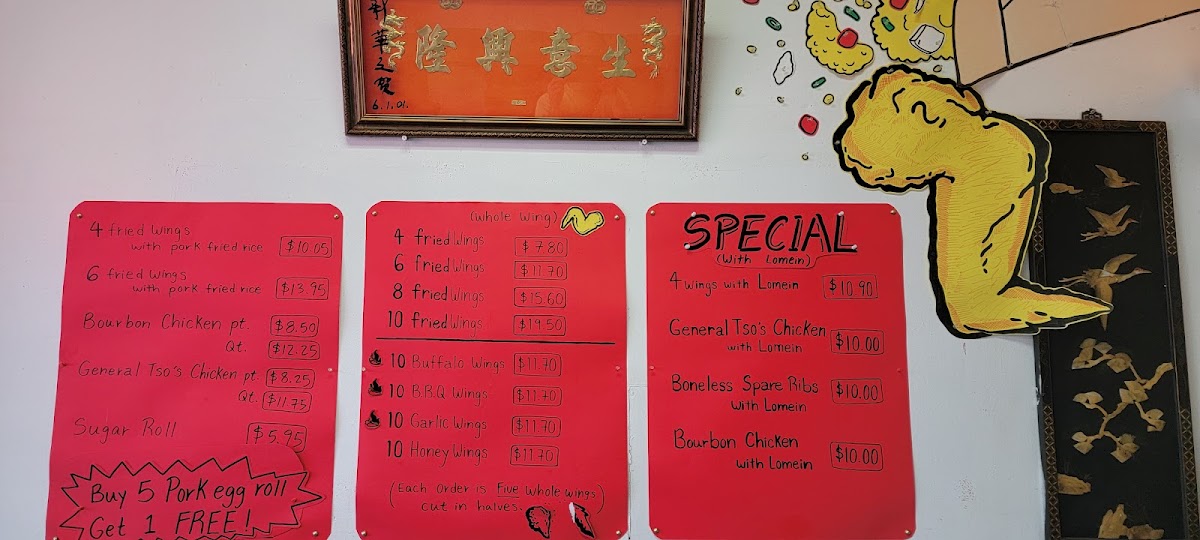 新華之賀
6.1.01.
隆興意生
4 fried Wings
with pork fried rice $10.05
6 fried Wings
with pork fried rice $13.95
Bourbon Chicken pt. $8.50
Qt. $12.25
General Tso's Chicken pt. $8.25
Qt. $11.75
Sugar Roll $5.95
Buy 5 Pork egg roll
Get 1 FREE!
(whole wing)
4 fried Wings $7.80
6 fried Wings $11.70
8 fried Wings $15.60
10 fried Wings $19.50
10 Buffalo Wings $11.70
10 B.B.Q Wings $11.70
10 Garlic Wings $11.70
10 Honey Wings $11.70
(Each order is Five whole wings
cut in halves.)
SPECIAL
(With Lomein)
4 Wings with Lomein $10.90
General Tso's Chicken
with Lomein $10.00
Boneless Spare Ribs
With Lomein $10.00
Bourbon Chicken
with Lomein $10.00